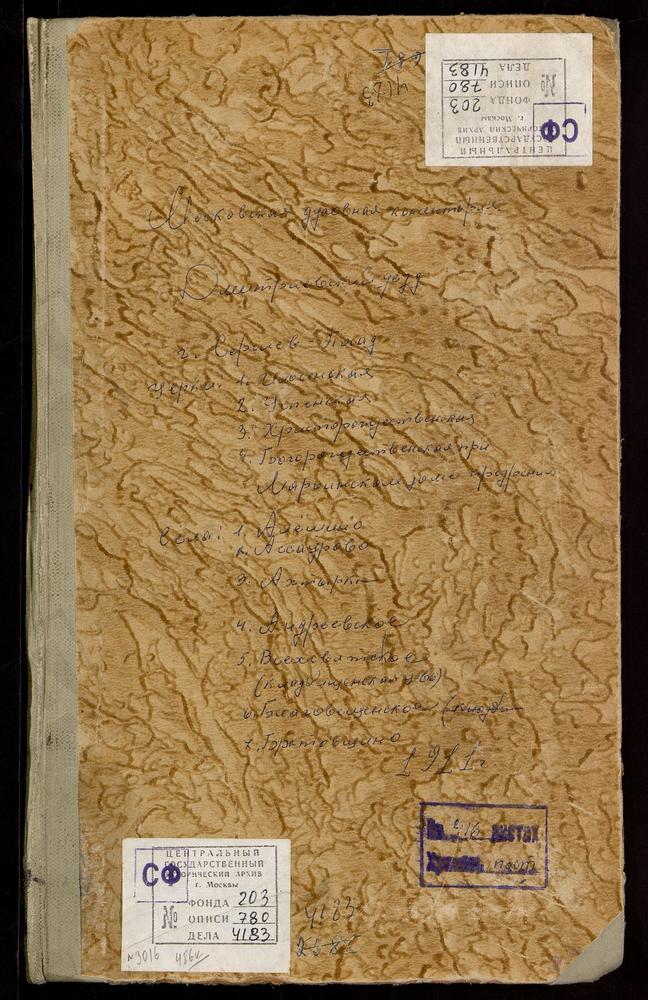 ЦЕНТРАЛЬНЫЙ
ГОСУДАРСТВЕННЫЙ
ИСТОРИЧЕСКИЙ АРХИВ
г. Москвы
СФ
ФОНДА 203
№ ОПИСИ 780
ДЕЛА 4183
4183
Московская духовная консистория.
Дмитриевский уезд
г. Сергиев-Посад
церкви: 1. Ильинская
2. Успенская
3. Христорождественская
4. Богородождественская при
Марьинском доме презрения
Села: 1. Алёшино
2. Ассаурово
3. Ахтырка
4. Андреевское
5. Всехсвятское
(кладбищенская ц-вь)
6. Благовещенское
7. Бортовщино
1911 г.
416 листах
ЦЕНТРАЛЬНЫЙ
ГОСУДАРСТВЕННЫЙ
ИСТОРИЧЕСКИЙ АРХИВ
г. Москвы
СФ
ФОНДА 203
№ ОПИСИ 780
ДЕЛА 4183
4183
№3016